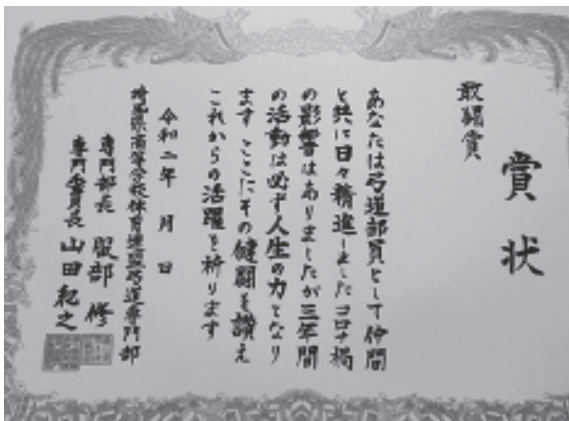 賞状
敢闘賞
あなたは弓道部員として仲間
と共に日々精進しましたコロナ禍
の影響はありましたが三年間
の活動は必ず人生の力となり
ます ここにその健闘を讃え
これからの活躍を祈ります
令和二年 月 日
埼玉県高等学校体育連盟弓道専門部
専門部長 服部 修
専門委員長 山田紀之